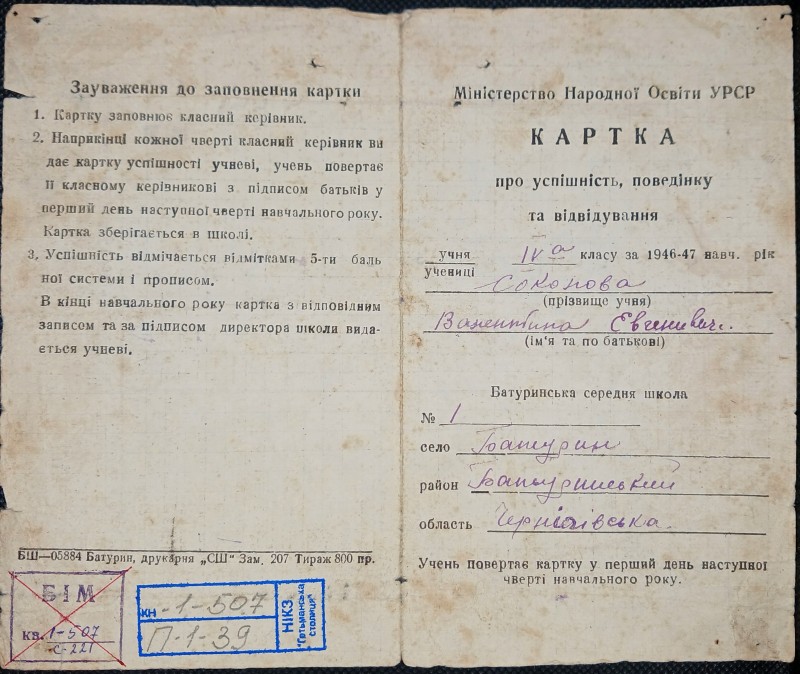 Зауваження до заповнення картки
1. Картку заповнює класний керівник.
2. Наприкінці кожної чверті класний керівник ви
дає картку успішності учневі, учень повертає
її класному керівникові з підписом батьків у
перший день наступної чверті навчального року.
Картка зберігається в школі.
3. Успішність відмічається відмітками 5-ти баль
ної системи і прописом.
В кінці навчального року картка з відповідним
записом та за підписом директора школи вида-
ється учневі.
БШ—05884 Батурин, друкарня „СШ" Зам. 207 Тираж 800 пр.
БІМ
кв. 1-507
с-221
КН -1-507
П-1-39
НІКЗ
"Гетьманська
столиця"
Міністерство Народної Освіти УРСР
КАРТКА
про успішність, поведінку
та відвідування
учня
учениці
IV а класу за 1946-47 навч. рік
Соколова
(прізвище учня)
Валентина Евгенивич.
(ім'я та по батькові)
Батуринська середня школа
№ 1
село Батурин
район Батуринський
область Чернігівська.
Учень повертає картку у перший день наступної
чверті навчального року.